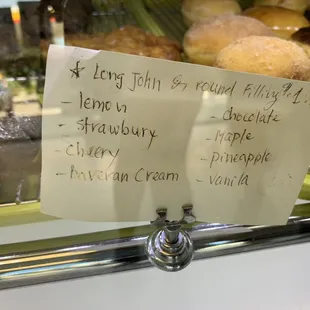 * Long John & round Filling
- lemon
- strawbury
- Cheery
- Baveran Cream
- chocolate
- Maple
- pineapple
- vanila